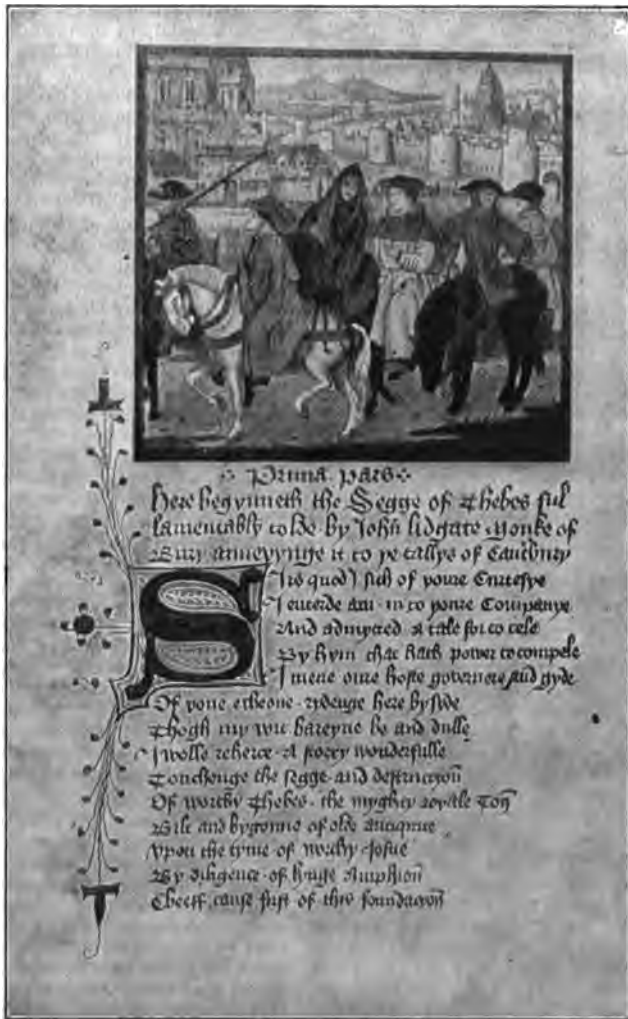 Prima pars
Here begynneth the Segge of Thebes ful
lamentably tolde by John lidgate Monke of
Bury anneyynge it to ye tallys of Cauntbury
Sirs quod I sith of youre Curtesye
I enterde am in to youre Companye
And admytted A tale for to tele
By hym that hath power to compele
I mene oure hoste governere and gyde
Of youe echeone rydenge here by syde
Thogh my wit bareyne be and dulle
I wolle reherce A story wonderfulle
Touchenge the segge and destruccyon
Of worthy Thebes the myghty royale Ton
Bilt and bygonne of olde antiquite
Vpon the tyme of worthy Josue
By diligence of kynge Amphion
Cheeff cause first of this foundacyon